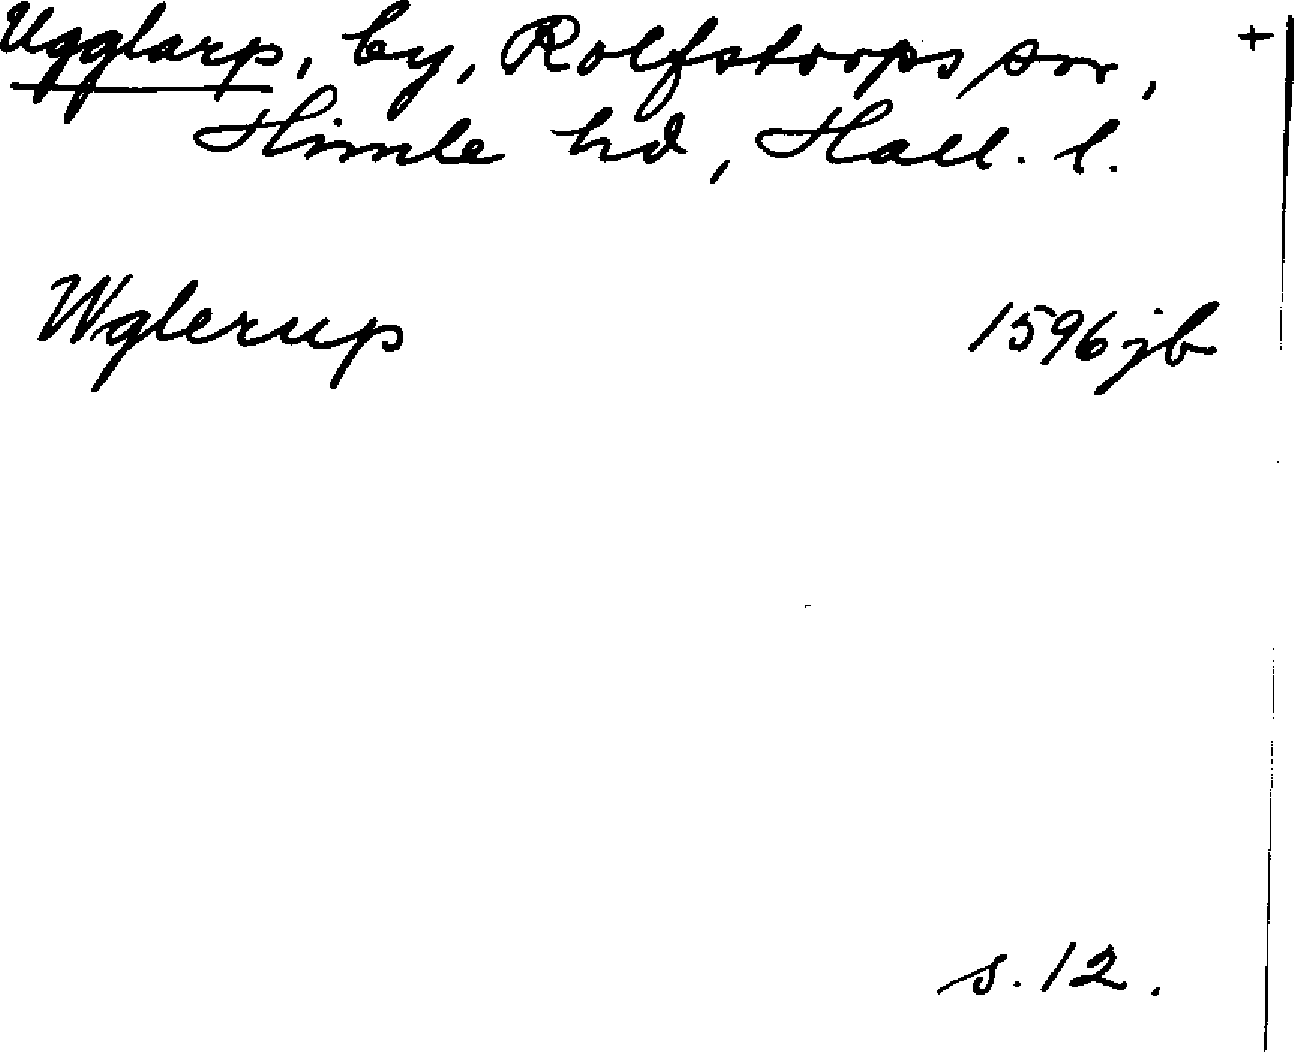 Ugglarp, by, Rolfstorps sn, +
Himle hd, Hall. l.
Wglerup 1596 jb
s. 12.